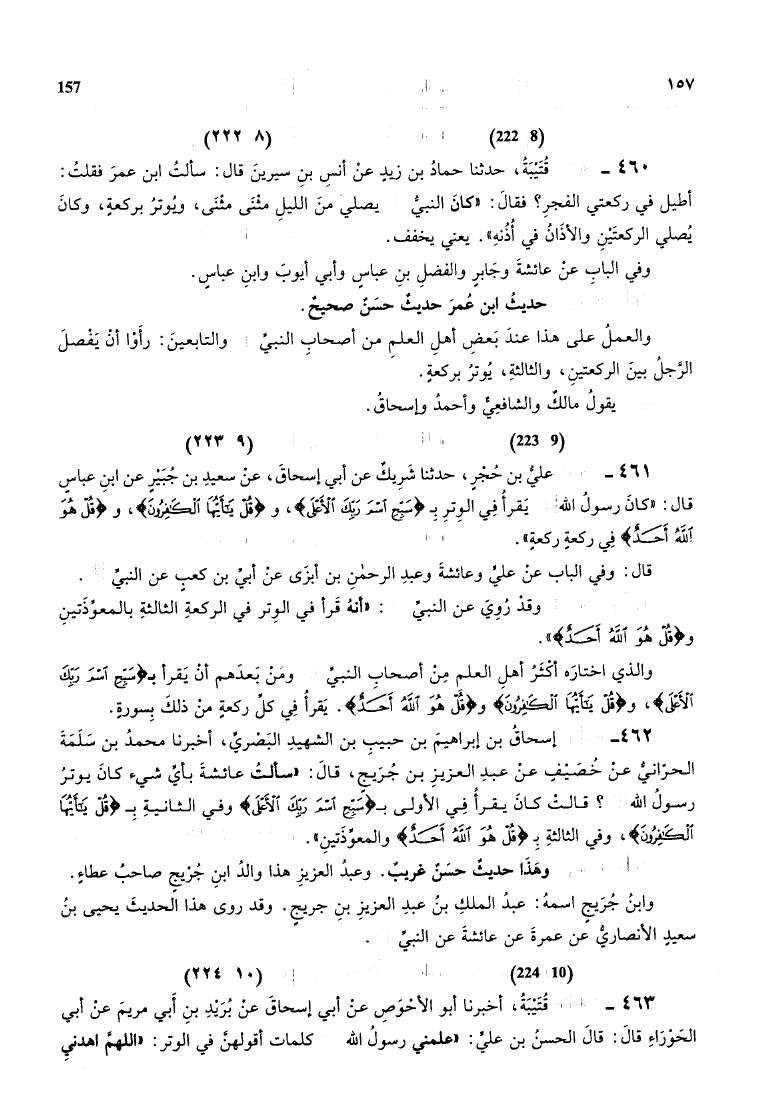 157 ١٥٧
(٨ ٢٢٢) (222 8)
٤٦٠ - قُتَيْبَةُ، حدثنا حمادُ بن زيدٍ عنْ أنسِ بنِ سيرينَ قال: سألتُ ابن عمرَ فقلتُ:
أطيل في ركعتي الفجرِ؟ فقالَ: «كانَ النبيُّ يصلي منَ الليلِ مثْنَى مثْنَى، ويُوتِرُ بركعةٍ، وكانَ
يُصلي الركعتَيْنِ والأذَانُ في أُذُنهِ». يعني يخفف.
وفي البابِ عنْ عائشةَ وجَابرٍ والفضلِ بنِ عباسٍ وأبي أيوبَ وابنِ عباسٍ.
حديثُ ابن عُمرَ حديثٌ حسَنٌ صحيحٌ.
والعملُ على هذا عندَ بَعضِ أهلِ العلمِ من أصحابِ النبيِّ والتابعينَ: رأَوْا أنْ يَفْصلَ
الرَّجلُ بينَ الركعتينِ، والثالثةِ، يُوترُ بركعةٍ.
يقولُ مالكٌ والشافعيُّ وأحمدُ وإسحاقُ.
(٩ ٢٢٣) (223 9)
٤٦١ - عليُّ بن حُجْرٍ، حدثنا شَريكٌ عن أبي إسحاقَ، عنْ سعيدِ بن جُبَيْرٍ عن ابنِ عباسٍ
قال: «كانَ رسولُ الله يَقرأُ في الوِترِ بـ ﴿سَبِّحِ ٱسْمَ رَبِّكَ ٱلْأَعْلَى﴾، و ﴿قُلْ يَٰٓأَيُّهَا ٱلْكَٰفِرُونَ﴾، و ﴿قُلْ هُوَ
ٱللَّهُ أَحَدٌ﴾ في ركعةٍ ركعةٍ».
قال: وفي الباب عنْ عليٍّ وعائشةَ وعبدِ الرحمٰنِ بن أبزَى عنْ أبيِّ بن كعبٍ عن النبيِّ .
وقدْ رُوِيَ عن النبيِّ : «أنهُ قَرأَ في الوِتر في الركعةِ الثالثةِ بالمعوِّذَتينِ
و﴿قُلْ هُوَ ٱللَّهُ أَحَدٌ﴾».
والذي اختارَه أكثَرُ أهلِ العلمِ مِنْ أصحابِ النبيِّ ومَنْ بَعدَهم أنْ يَقرأَ بـ﴿سَبِّحِ ٱسْمَ رَبِّكَ
ٱلْأَعْلَى﴾، و﴿قُلْ يَٰٓأَيُّهَا ٱلْكَٰفِرُونَ﴾ و﴿قُلْ هُوَ ٱللَّهُ أَحَدٌ﴾. يَقرأُ في كلِّ ركعةٍ منْ ذلكَ بِسورةٍ.
٤٦٢ - إسحاقُ بن إبراهيمَ بن حبيبِ بن الشهيدِ البَصْريِّ، أخبرنا محمدُ بن سَلَمَةَ
الحرّانيُّ عنْ خُصَيْفٍ عنْ عبدِ العزيزِ بن جُرَيجٍ، قالَ: «سألتُ عائشةَ بأيِّ شيءٍ كانَ يوترُ
رسولُ الله ؟ قالتْ كانَ يقرأُ في الأولى بـ﴿سَبِّحِ ٱسْمَ رَبِّكَ ٱلْأَعْلَى﴾ وفي الثانيةِ بـ ﴿قُلْ يَٰٓأَيُّهَا
ٱلْكَٰفِرُونَ﴾، وفي الثالثةِ بـ ﴿قُلْ هُوَ ٱللَّهُ أَحَدٌ﴾ والمعوِّذَتينِ».
وهَذَا حديثٌ حسَنٌ غريبٌ. وعبدُ العزيزِ هذا والدُ ابنِ جُرَيجٍ صاحبُ عطاءٍ.
وابنُ جُرَيجٍ اسمهُ: عبدُ الملكِ بنُ عبدِ العزيزِ بنِ جريجٍ. وقد روى هذا الحديثَ يحيى بنُ
سعيدٍ الأنصاريُّ عن عمرةَ عن عائشةَ عن النبيِّ .
(١٠ ٢٢٤) (224 10)
٤٦٣ - قُتَيْبَةُ، أخبرنا أبو الأحْوَصِ عنْ أبي إسحاقَ عنْ بُرَيْدِ بنِ أبي مريمَ عنْ أبي
الحَوْرَاءِ قالَ: قالَ الحسنُ بن عليٍّ: «علمني رسولُ الله كلمات أقولهنَّ في الوتر: «اللهمَّ اهدني